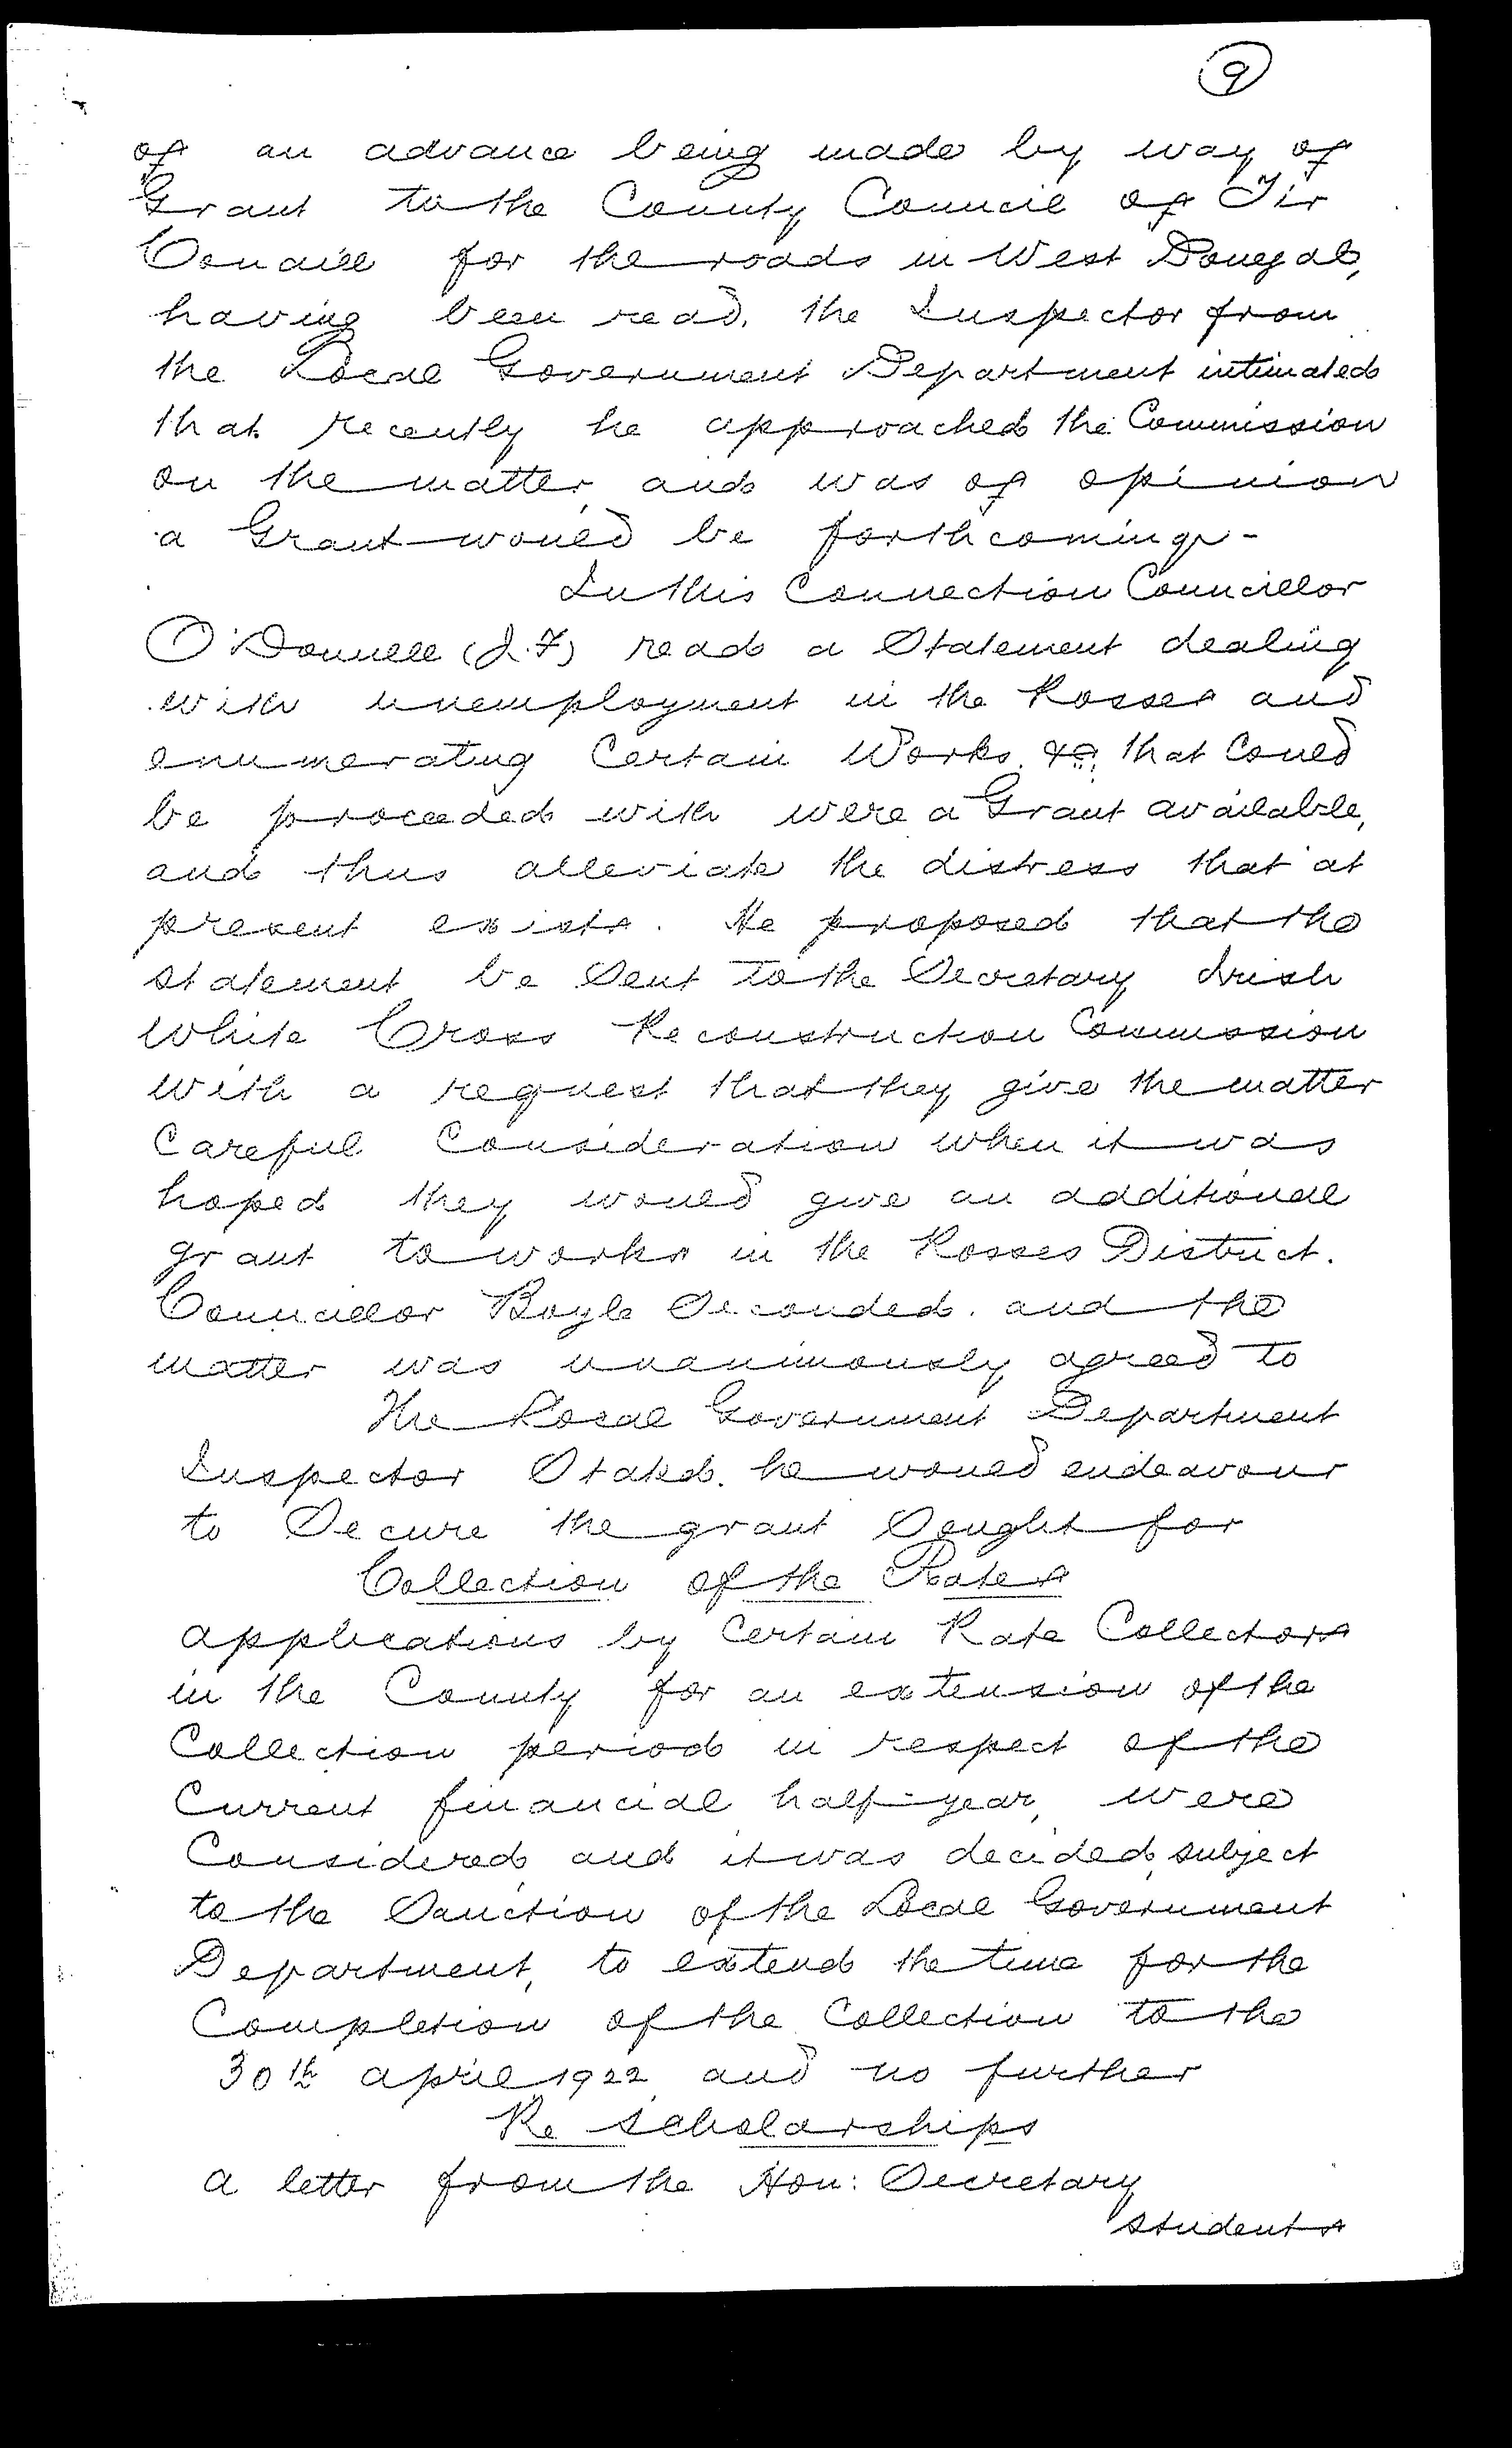 9
of an advance being made by way of
Grant to the County Council of Tir
Conaill for the roads in West Donegal,
having been read, the Inspector from
the Local Government Department intimated
that recently he approached the Commission
on the matter, and was of opinion
a Grant would be forthcoming -
In this Connection Councillor
O'Donnell (J.F) read a Statement dealing
with unemployment in the Rosses and
enumerating Certain Works &c, that Could
be proceeded with were a Grant available,
and thus alleviate the distress that at
present exists. He proposed that the
statement be Sent to the Secretary Irish
White Cross Reconstruction Commission
with a request that they give the matter
Careful Consideration when it was
hoped they would give an additional
grant to works in the Rosses District.
Councillor Boyle Seconded. and the
matter was unanimously agreed to
The Local Government Department
Inspector Stated. he would endeavour
to Secure the grant Sought for
Collection of the Rates
applications by Certain Rate Collectors
in the County for an extension of the
Collection period in respect of the
Current financial half-year, were
Considered, and it was decided, subject
to the Sanction of the Local Government
Department, to extend the time for the
Completion of the Collection to the
30th april 1922, and no further
Re Scholarships
a letter from the Hon: Secretary
Students